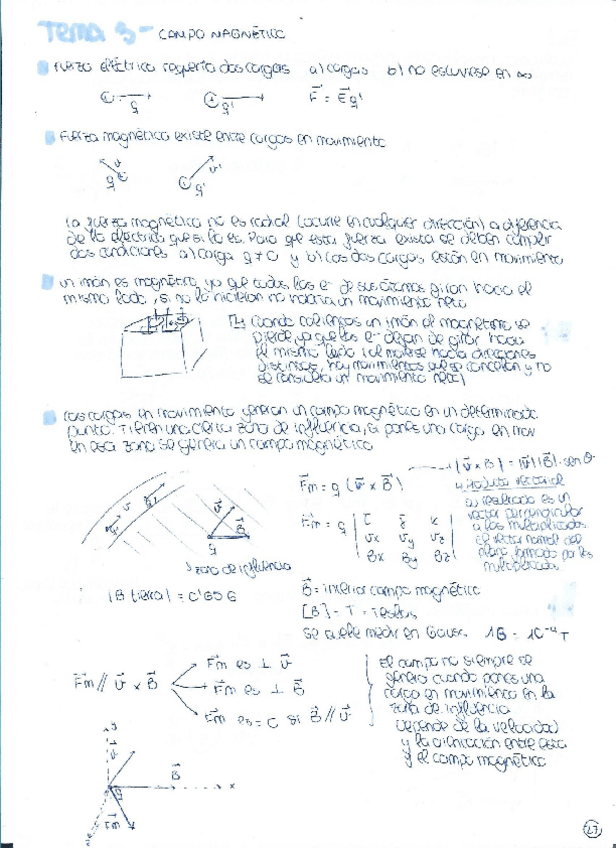 Tema 3 - CAMPO MAGNÉTICO
Fuerza eléctrica respecto dos cargas a) cargas b) no estuviese en ∞
q q' F = E q'
Fuerza magnética existe entre cargas en movimiento
q v q' v'
La fuerza magnética no es radial (ocurre en cualquier dirección) a diferencia
de la eléctrica que si lo es. Para qe esta fuerza exista se deben cumplir
dos condiciones a) carga q ≠ 0 y b) las dos cargas estén en movimiento
un imán es magnético, ya que todos los e- de sus átomos giran hacia el
mismo lado, si no lo hicieran no habría un movimiento neto
↳ cuando calientas un imán el magnetismo se
pierde ya que los e- dejan de girar hacia
el mismo lado (al moverse hacia direcciones
distintas, hay movimientos que se cancelan y no
se considera un movimiento neto)
Las cargas en movimiento generan un campo magnético en un determinado
punto. Tienen una cierta zona de influencia, si pones una carga en mov
en esa zona se genera un campo magnético
|v x B| = |v| |B| · sen θ
Fm = q (v x B)
↳ Producto vectorial
el resultado es un
vector perpendicular
a los multiplicados
el vector normal del
plano formado por los
multiplicados
Fm = q | i j k |
vx vy vz
Bx By Bz
v B q
zona de influencia
B = inferior campo magnético
|B tierra| = 0'6 G
[B] = T = Teslas
Se suele medir en Gauss. 1G = 10⁻⁴ T
Fm // v x B
Fm es ⊥ v
Fm es ⊥ B
Fm es = 0 si B // v
el campo no siempre se
genera cuando pones una
carga en movimiento en la
zona de influencia
Depende de la velocidad
y la orientación entre esta
y el campo magnético
y v B x q Fm
27